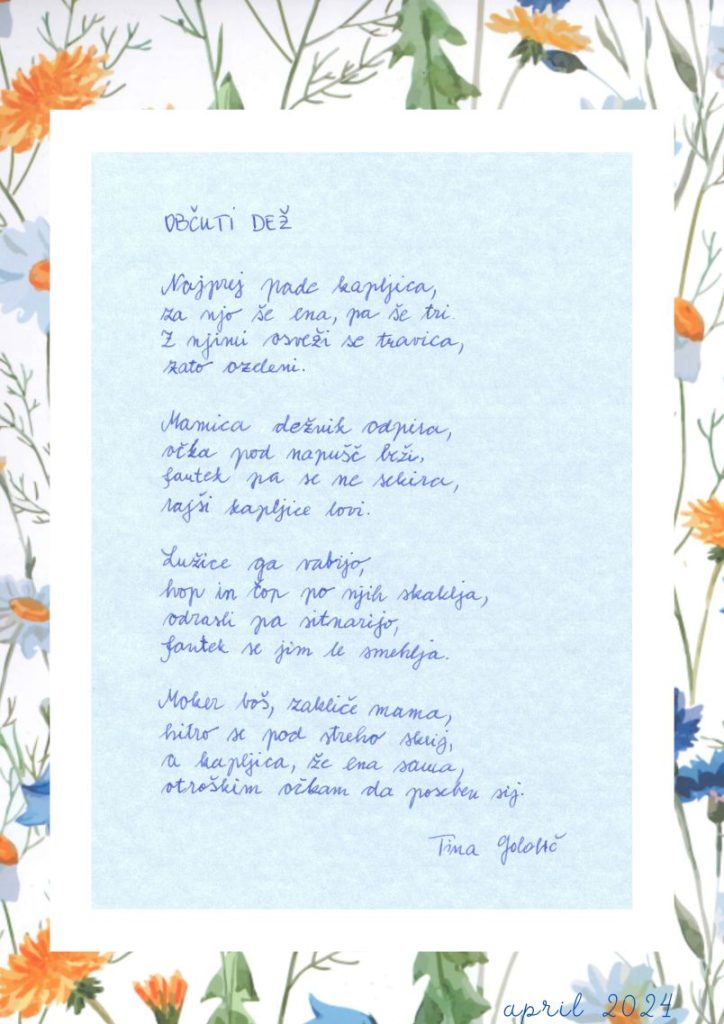 OBČUTI DEŽ
Najprej pade kapljica,
za njo še ena, pa še tri.
Z njimi osveži se travica,
zato ozeleni.
Mamica dežnik odpira,
očka pod napušč beži,
fantek pa se ne sekira,
rajši kapljice lovi.
Lužice ga vabijo,
hop in čop po njih skaklja,
odrasli pa sitnarijo,
fantek se jim le smehlja.
Moker boš, zakliče mama,
hitro se pod streho skrij,
a kapljica, že ena sama,
otroškim očkam da poseben sij.
Tina
april 2024